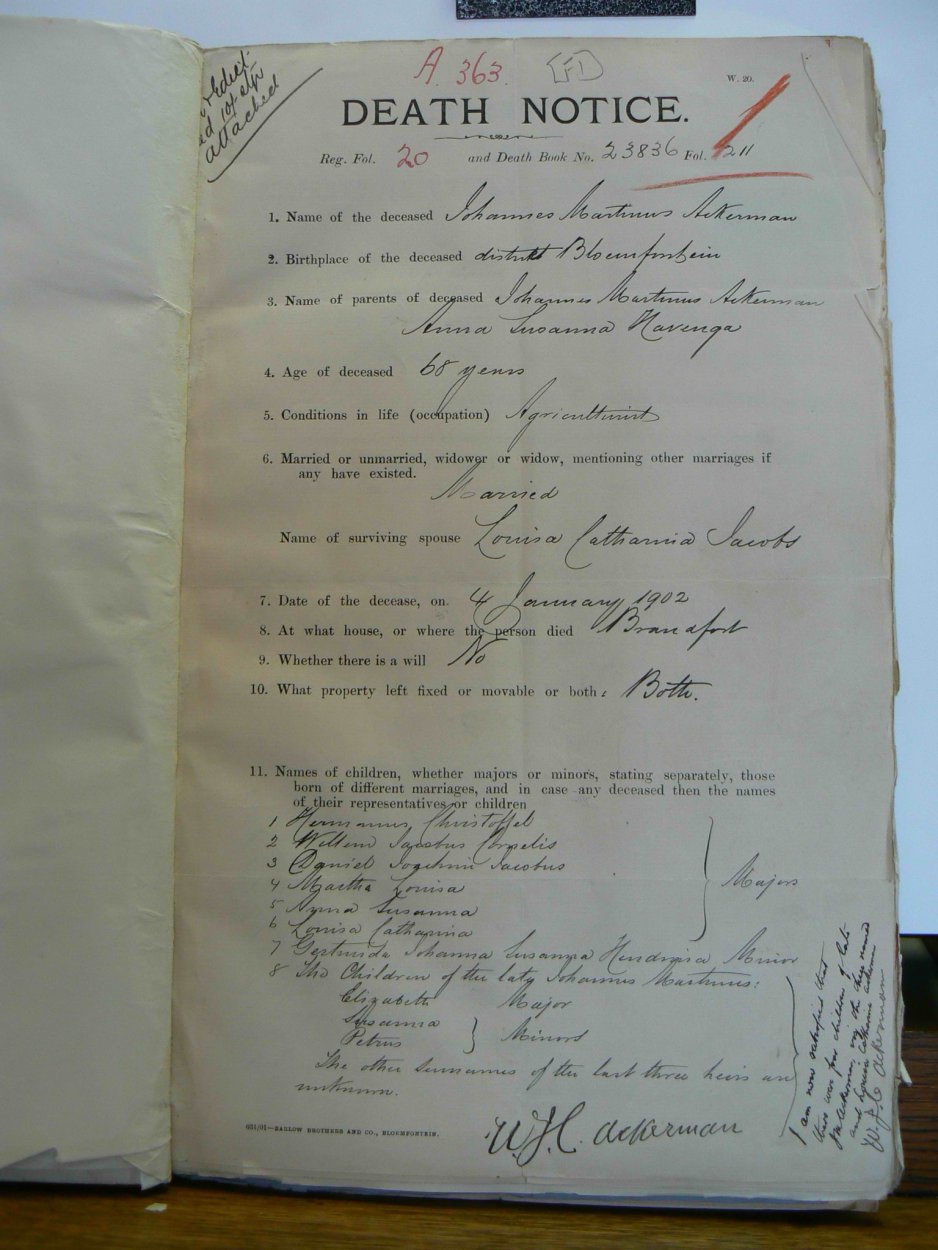 attached
A. 363. FD
W. 20.
DEATH NOTICE.
Reg. Fol. 20 and Death Book No. 23836 Fol. 211
1. Name of the deceased Johannes Martinus Ackerman
2. Birthplace of the deceased district Bloemfontein
3. Name of parents of deceased Johannes Martinus Ackerman
Anna Susanna Havenga
4. Age of deceased 68 years
5. Conditions in life (occupation) Agriculturist
6. Married or unmarried, widower or widow, mentioning other marriages if
any have existed.
Married
Name of surviving spouse Louisa Catharina Jacobs
7. Date of the decease, on 4 January 1902
8. At what house, or where the person died Brandfort
9. Whether there is a will No
10. What property left fixed or movable or both: Both.
11. Names of children, whether majors or minors, stating separately, those
born of different marriages, and in case any deceased then the names
of their representatives or children
1 Hermanus Christoffel
2 Willem Jacobus Cornelis
3 Daniel Jogchim Jacobus
4 Martha Louisa
Majors
5 Anna Susanna
6 Louisa Catharina
7 Gertruida Johanna Susanna Hendrina Minor
8 The Children of the late Johannes Martinus:
Elizabeth Major
Susanna
Petrus Minors
The other surnames of the last three heirs are
unknown.
W.J.C. Ackerman
631/01—BARLOW BROTHERS AND CO., BLOEMFONTEIN.
I am now satisfied that
there are four children of late
J M Ackerman, viz the three named
and Louisa Catharina Ackerman
W.J.C Ackerman